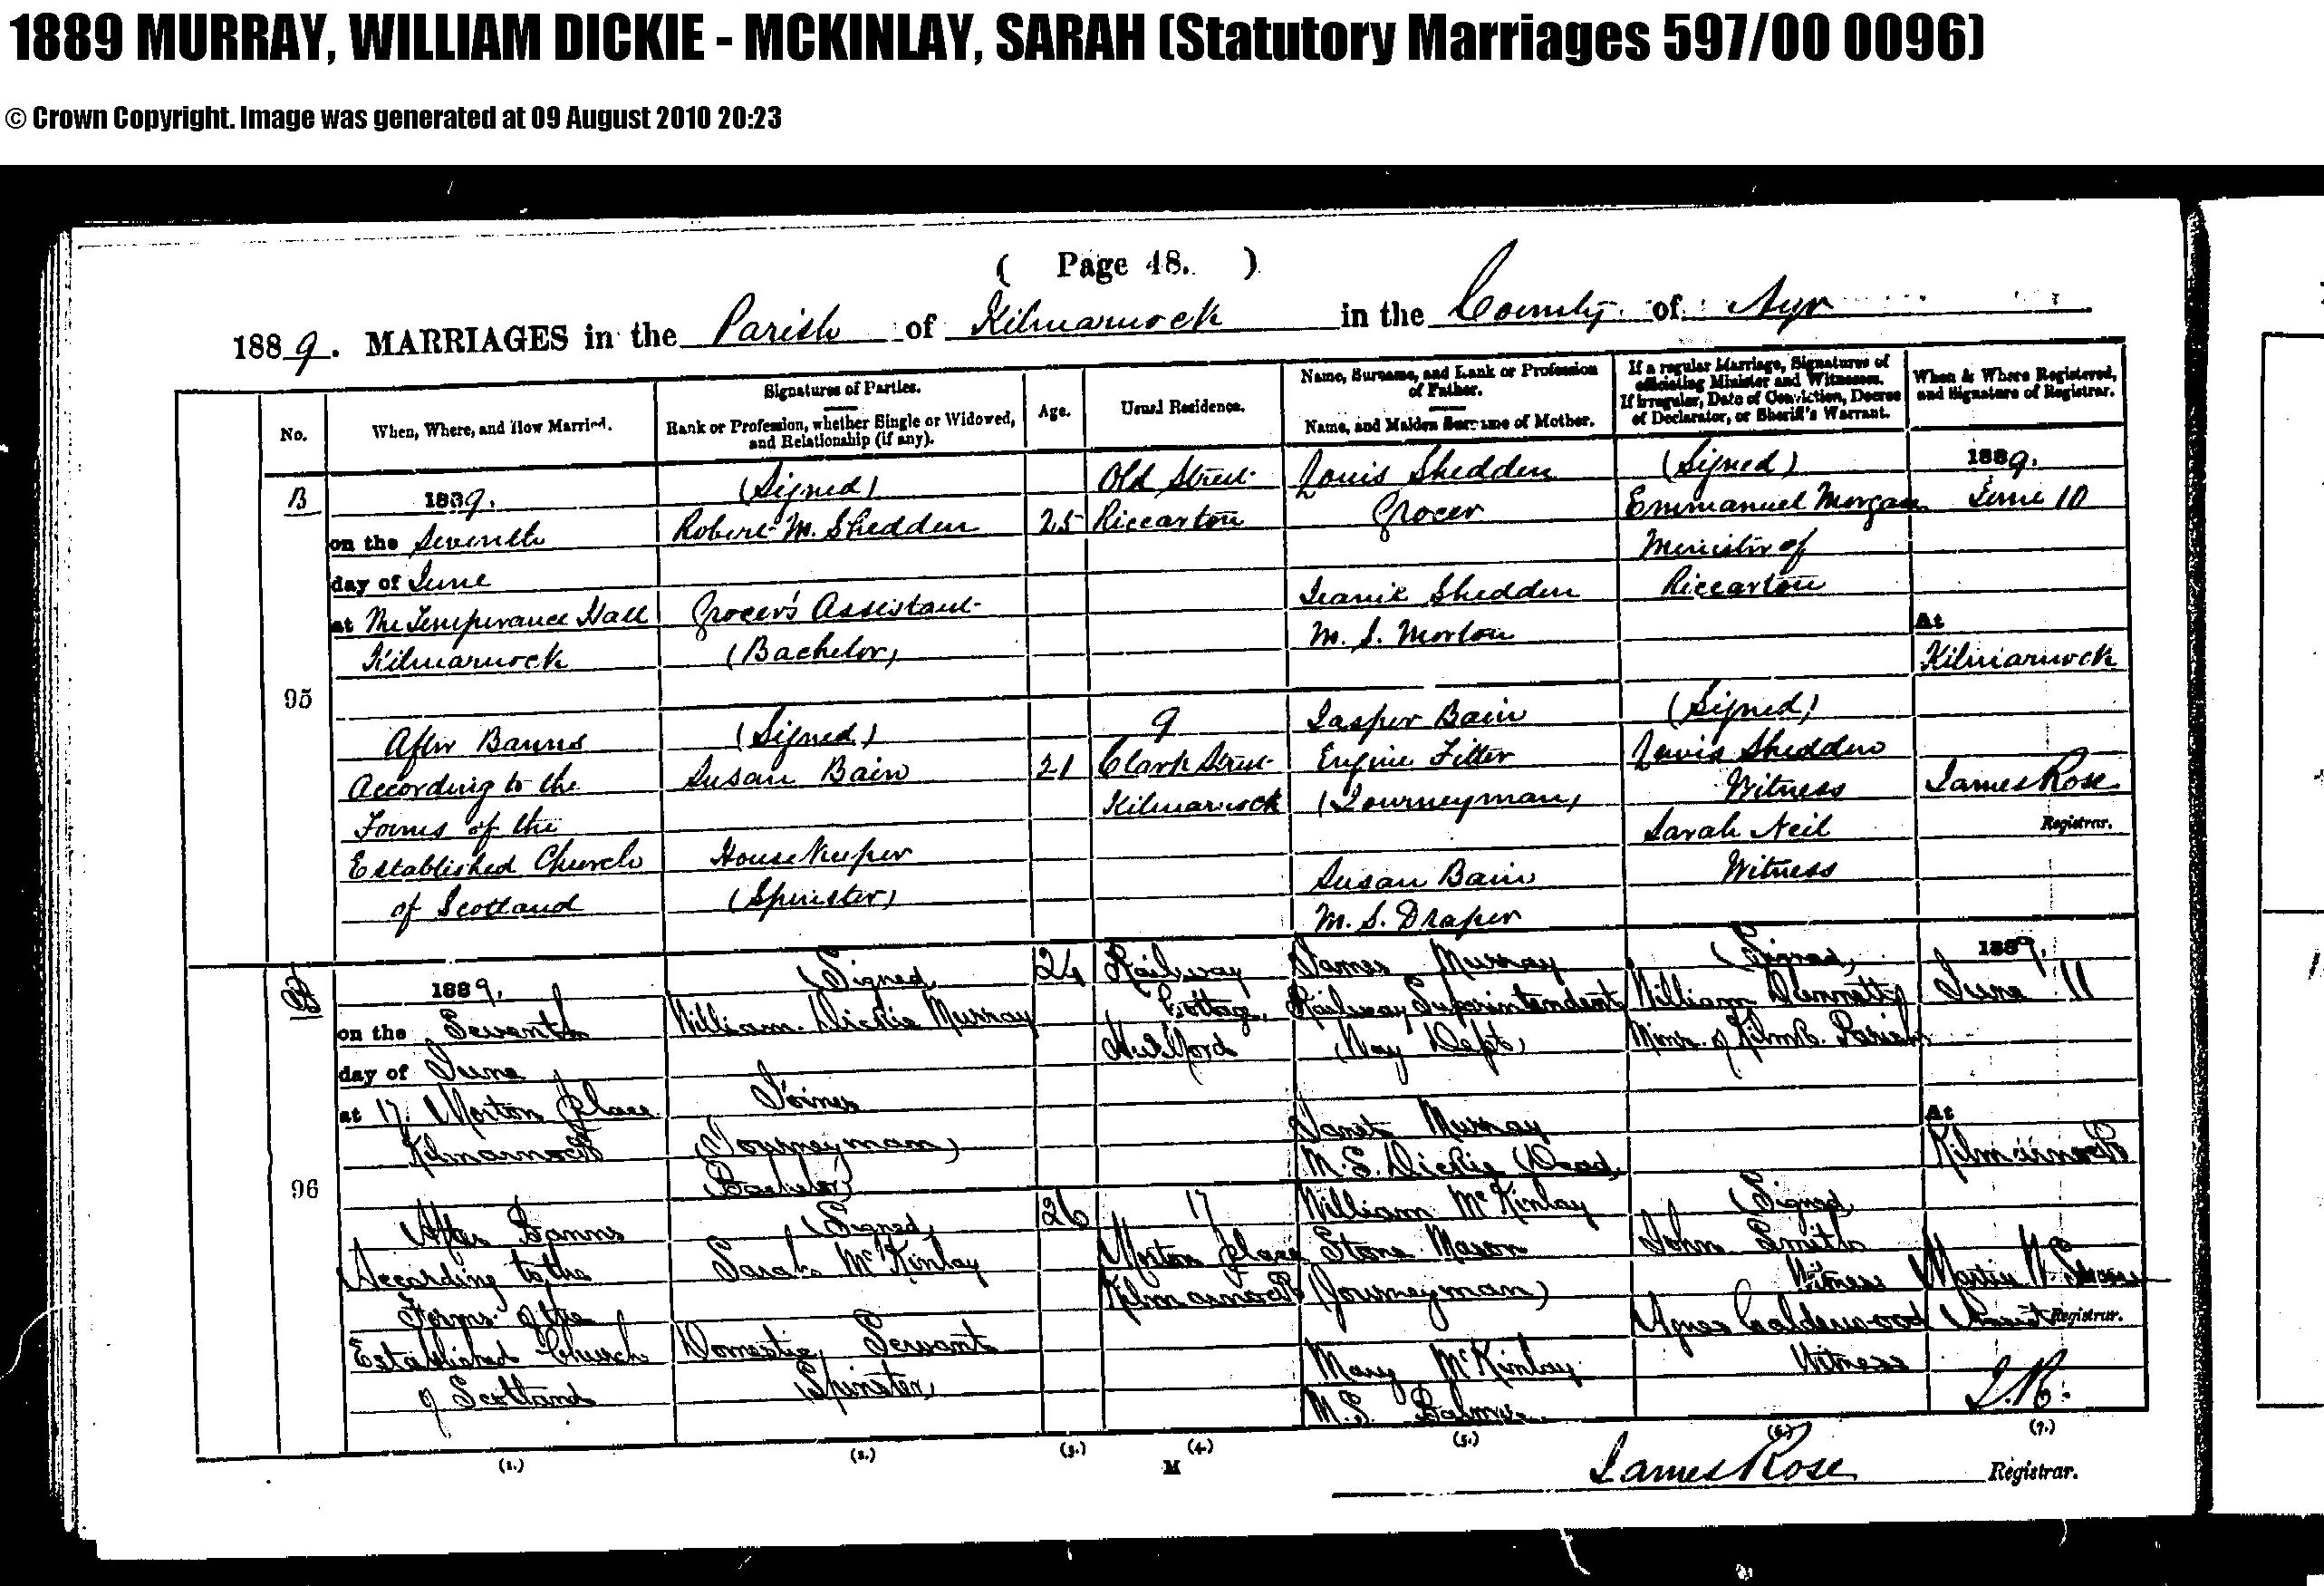 1889 MURRAY, WILLIAM DICKIE - MCKINLAY, SARAH (Statutory Marriages 597/00 0096)
© Crown Copyright. Image was generated at 09 August 2010 20:23
( Page 48. )
1889. MARRIAGES in the Parish of Kilmarnock in the County of Ayr
No.
When, Where, and How Married.
Signatures of Parties.
Rank or Profession, whether Single or Widowed,
and Relationship (if any).
Age.
Usual Residence.
Name, Surname, and Rank or Profession
of Father.
Name, and Maiden Surname of Mother.
If a regular Marriage, Signatures of
officiating Minister and Witnesses.
If irregular, Date of Conviction, Decree
of Declarator, or Sheriff's Warrant.
When & Where Registered,
and Signature of Registrar.
B
95
1889.
on the Seventh
day of June
at The Temperance Hall
Kilmarnock
After Banns
According to the
Forms of the
Established Church
of Scotland
(Signed)
Robert M. Shedden
Grocer's Assistant
(Bachelor)
(Signed)
Susan Bain
Housekeeper
(Spinster)
25
21
Old Street
Riccarton
9
Clark Street
Kilmarnock
Louis Shedden
Grocer
Jeanie Shedden
M.S. Morton
Jasper Bain
Engine Fitter
(Journeyman)
Susan Bain
M.S. Draper
(Signed)
Emmanuel Morgan
Minister of
Riccarton
(Signed)
Lewis Shedden
Witness
Sarah Neil
Witness
1889.
June 10
At
Kilmarnock
James Rose
Registrar.
96
1889.
on the Seventh
day of June
at 17 Morton place
Kilmarnock
After Banns
According to the
Forms of the
Established Church
of Scotland
(Signed)
William Dickie Murray
Joiner
(Journeyman)
(Bachelor)
(Signed)
Sarah McKinlay
Domestic Servant
(Spinster)
24
26
Railway
Cottage,
Hurlford
17
Morton place
Kilmarnock
James Murray
Railway Superintendent
(Way Dept)
Janet Murray
M.S. Dickie (Dead)
William McKinlay
Stone Mason
(Journeyman)
Mary McKinlay
M.S.
(Signed)
William
Minr. of Kilmk. Parish
(Signed)
John Smith
Witness
Agnes Calderwood
Witness
1889.
June 11
At
Kilmarnock
Martin W.
Assist Registrar.
J.R.
(1.) (2.) (3.) (4.) (5.) (6.) (7.)
M
James Rose Registrar.